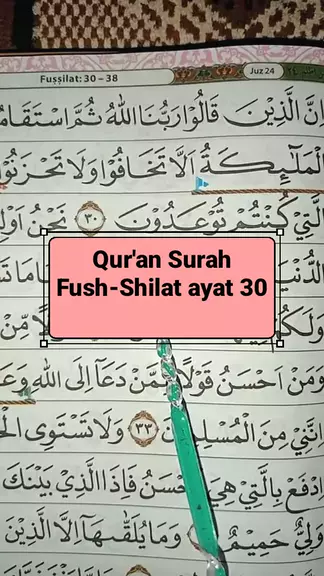 Fuṣṣilat: 30 – 38
Juz 24
اِنَّ الَّذِيْنَ قَالُوْا رَبُّنَا اللّٰهُ ثُمَّ اسْتَقَامُ
الْمَلٰۤىِٕكَةُ اَلَّا تَخَافُوْا وَلَا تَحْزَنُوْا
الَّتِيْ كُنْتُمْ تُوْعَدُوْنَ ٣٠ نَحْنُ اَوْلِ
Qur'an Surah
Fush-Shilat ayat 30
الدُّنْيَا
وَلَكُمْ
وَمَنْ اَحْسَنُ قَوْلًا مِّمَّنْ دَعَآ اِلَى اللّٰهِ وَعَ
اِنَّنِيْ مِنَ الْمُسْلِمِيْنَ ٣٣ وَلَا تَسْتَوِى الْحَ
اِدْفَعْ بِالَّتِيْ هِيَ اَحْسَنُ فَاِذَا الَّذِيْ بَيْنَكَ
وَلِيٌّ حَمِيْمٌ وَمَا يُلَقّٰىهَآ اِلَّا الَّذِيْنَ